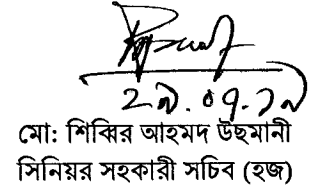 ২৯.০৭.১৯
মো: শিব্বির আহমদ উছমানী
সিনিয়র সহকারী সচিব (হজ)